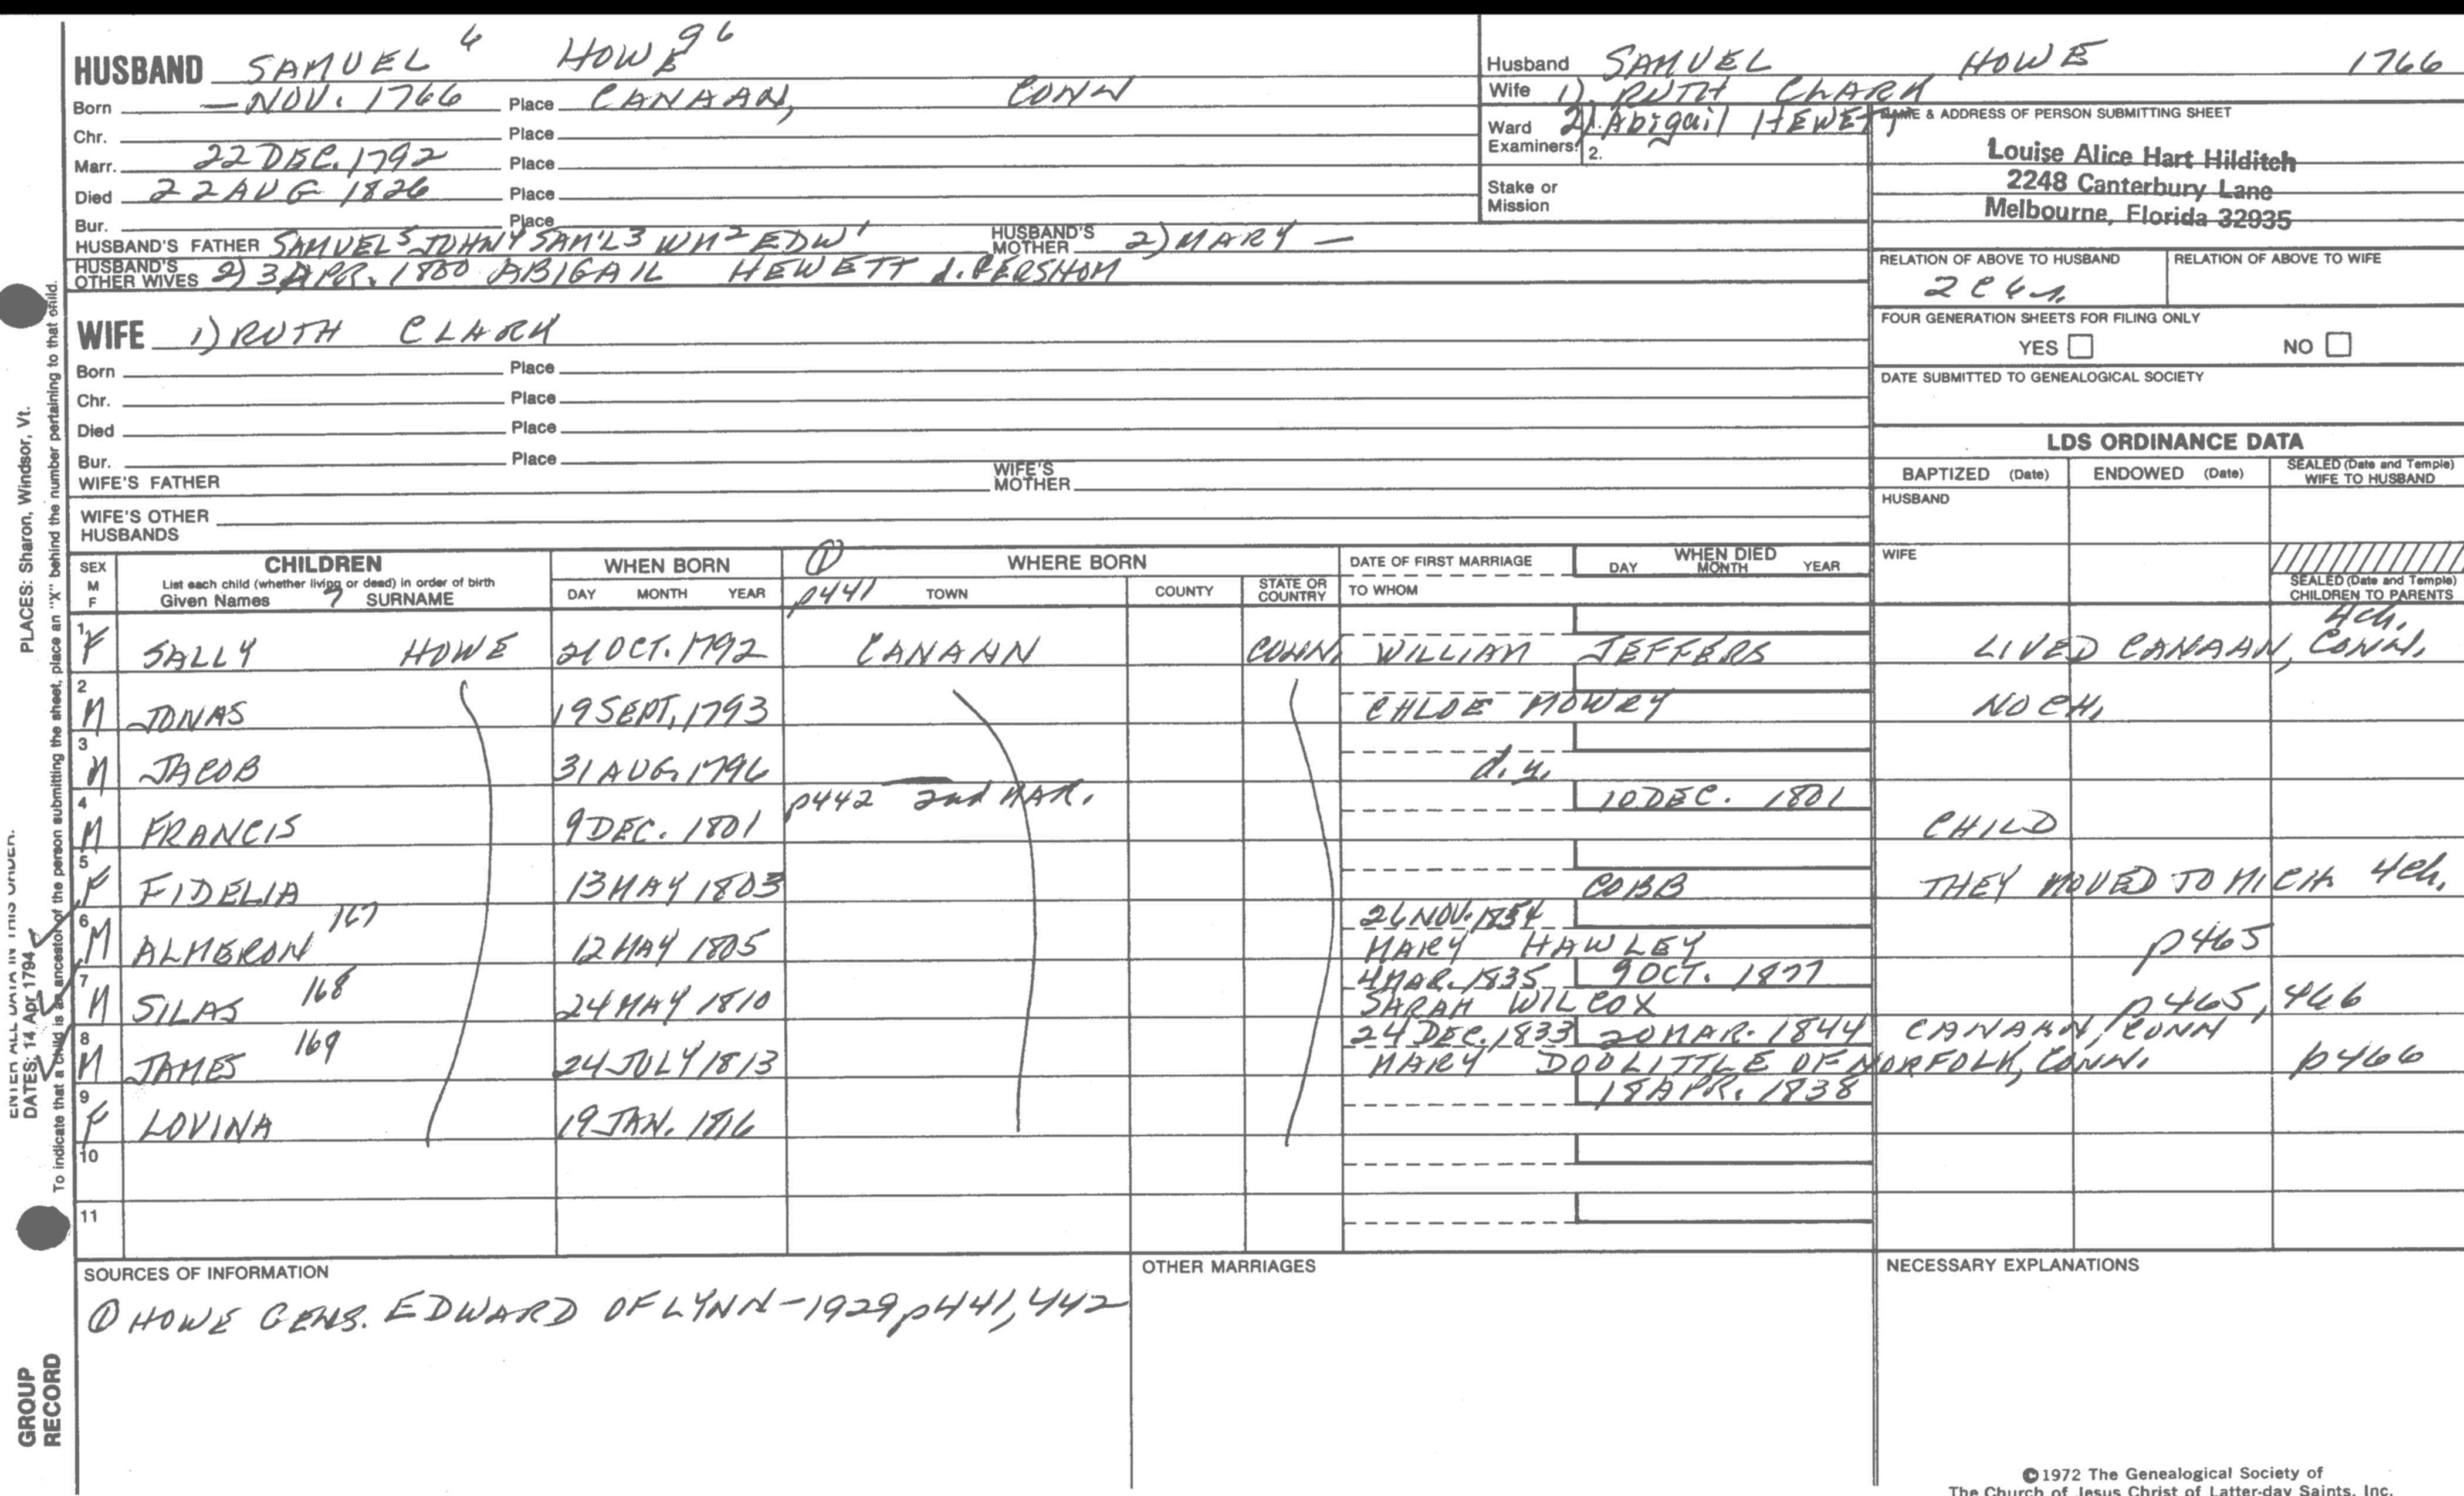 HUSBAND SAMUEL 6 HOWE 96
Born — NOV. 1766 Place CANAAN, CONN
Chr. Place
Marr. 22 DEC. 1792 Place
Died 22 AUG 1826 Place
Bur. Place
HUSBAND'S FATHER SAMUEL 5 JOHN 4 SAM'L 3 WM 2 EDW 1 HUSBAND'S MOTHER 2) MARY —
HUSBAND'S OTHER WIVES 2) 3 APR. 1800 ABIGAIL HEWETT d. GERSHOM
WIFE 1) RUTH CLARK
Born Place
Chr. Place
Died Place
Bur. Place
WIFE'S FATHER WIFE'S MOTHER
WIFE'S OTHER HUSBANDS
Husband SAMUEL HOWE 1766
Wife 1) RUTH CLARK
Ward 2) Abigail HEWETT
Examiners: 2.
Stake or Mission
NAME & ADDRESS OF PERSON SUBMITTING SHEET
Louise Alice Hart Hilditch
2248 Canterbury Lane
Melbourne, Florida 32935
RELATION OF ABOVE TO HUSBAND RELATION OF ABOVE TO WIFE
FOUR GENERATION SHEETS FOR FILING ONLY
YES NO
DATE SUBMITTED TO GENEALOGICAL SOCIETY
LDS ORDINANCE DATA
BAPTIZED (Date) ENDOWED (Date) SEALED (Date and Temple) WIFE TO HUSBAND
HUSBAND
WIFE
SEALED (Date and Temple) CHILDREN TO PARENTS
SEX M F CHILDREN WHEN BORN ① WHERE BORN DATE OF FIRST MARRIAGE WHEN DIED
List each child (whether living or dead) in order of birth
Given Names 7 SURNAME DAY MONTH YEAR p441 TOWN COUNTY STATE OR COUNTRY TO WHOM DAY MONTH YEAR
4ch.
1 F SALLY HOWE 21 OCT. 1792 CANAAN CONN. WILLIAM JEFFERS LIVED CANAAN, CONN.
2 M JONAS 19 SEPT. 1793 CHLOE MOWRY NO CH.
3 M JACOB 31 AUG. 1796 d.y.
p442 2nd MAR. 10 DEC. 1801
4 M FRANCIS 9 DEC. 1801 CHILD
5 F FIDELIA 13 MAY 1803 COBB THEY MOVED TO MICH 4ch.
26 NOV. 1854
6 M ALMERON 167 12 MAY 1805 MARY HAWLEY p465
4 MAR. 1835 9 OCT. 1877
7 M SILAS 168 24 MAY 1810 SARAH WILCOX p465, 466
24 DEC. 1833 20 MAR. 1844 CANAAN, CONN
8 M JAMES 169 24 JULY 1813 MARY DOOLITTLE OF NORFOLK, CONN. p466
18 APR. 1838
9 F LOVINA 19 JAN. 1816
10
11
SOURCES OF INFORMATION
① HOWE GENS. EDWARD OF LYNN - 1929 p441, 442
OTHER MARRIAGES
NECESSARY EXPLANATIONS
©1972 The Genealogical Society of
The Church of Jesus Christ of Latter-day Saints, Inc.
PLACES: Sharon, Windsor, Vt.
DATES: 14 Apr 1794
To indicate that a child is an ancestor of the person submitting the sheet, place an "X" behind the number pertaining to that child.
GROUP
RECORD